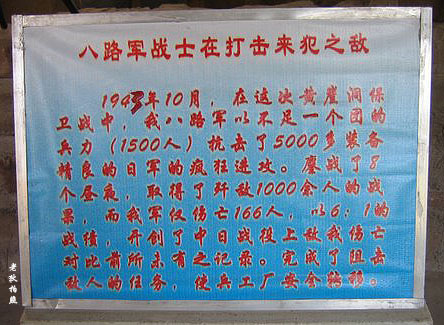 八路军战士在打击来犯之敌
1943年10月,在这次黄崖洞保
卫战中,我八路军以不足一个团的
兵力(1500人)抗击了5000多装备
精良的日军的疯狂进攻。鏖战了8
个昼夜,取得了歼敌1000余人的战
果,而我军仅伤亡166人,以6:1的
战绩,开创了中日战役上敌我伤亡
对比前所未有之记录。完成了阻击
敌人的任务,使兵工厂安全转移。
老孜杨燕